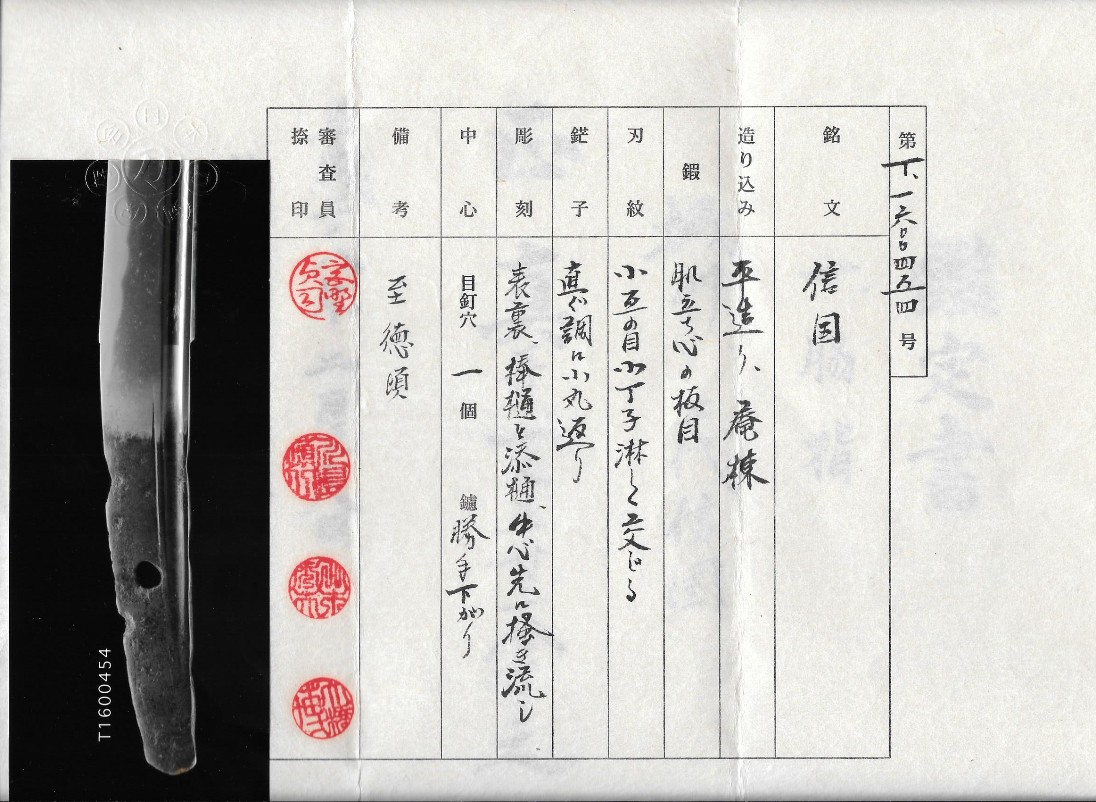 第 T、一六〇〇四五四 号
銘文
信国
造り込み
平造り、庵棟
鍜
肌立ち心の板目
刃紋
小互の目小丁子淋しく交じる
鋩子
直ぐ調に小丸返り
彫刻
表裏、棒樋と添樋、中心先に掻き流し
中心
目釘穴 一 個 鑢 勝手下がり
備考
至徳頃
審査員
捺印
T1600454